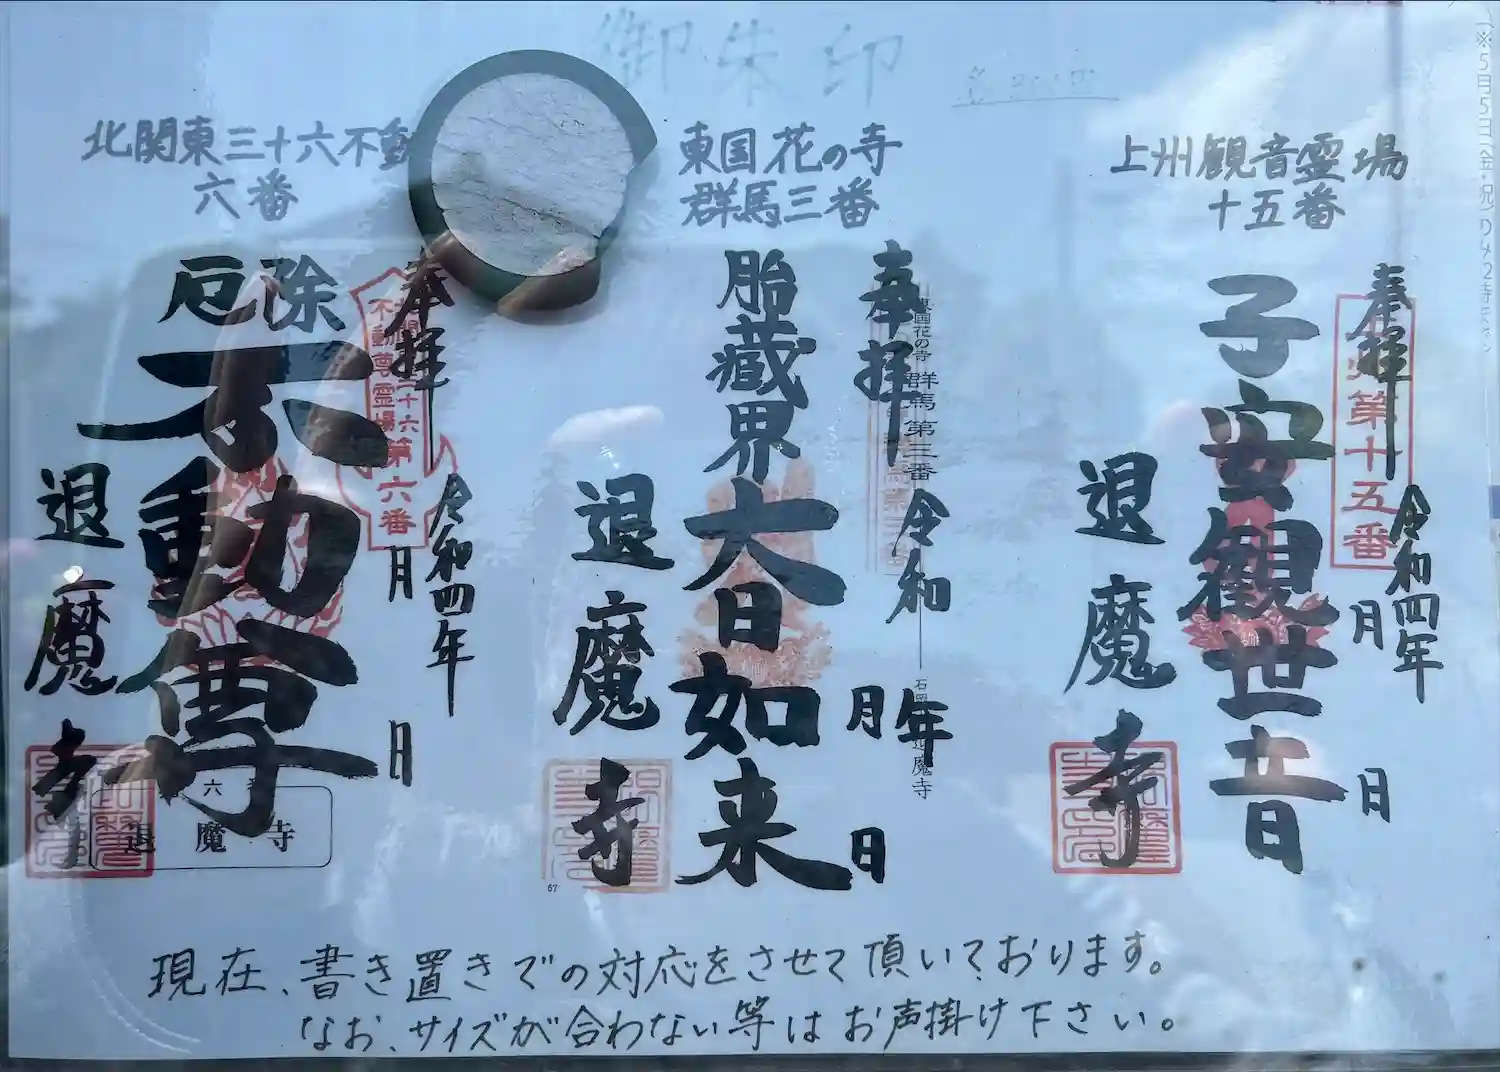 御朱印
各300円
上州観音霊場
十五番
奉拝
令和四年
月
日
第十五番
子安観世音
退魔寺
東国花の寺
群馬三番
奉拝
令和
年
月
日
東国花の寺 群馬第三番
胎蔵界大日如来
退魔寺
67
北関東三十六不動
六番
奉拝
令和四年
月
日
三十六
不動尊霊場
第六番
厄除
不動尊
退魔寺
退魔寺
現在、書き置きでの対応をさせて頂いております。
なお、サイズが合わない等はお声掛け下さい。